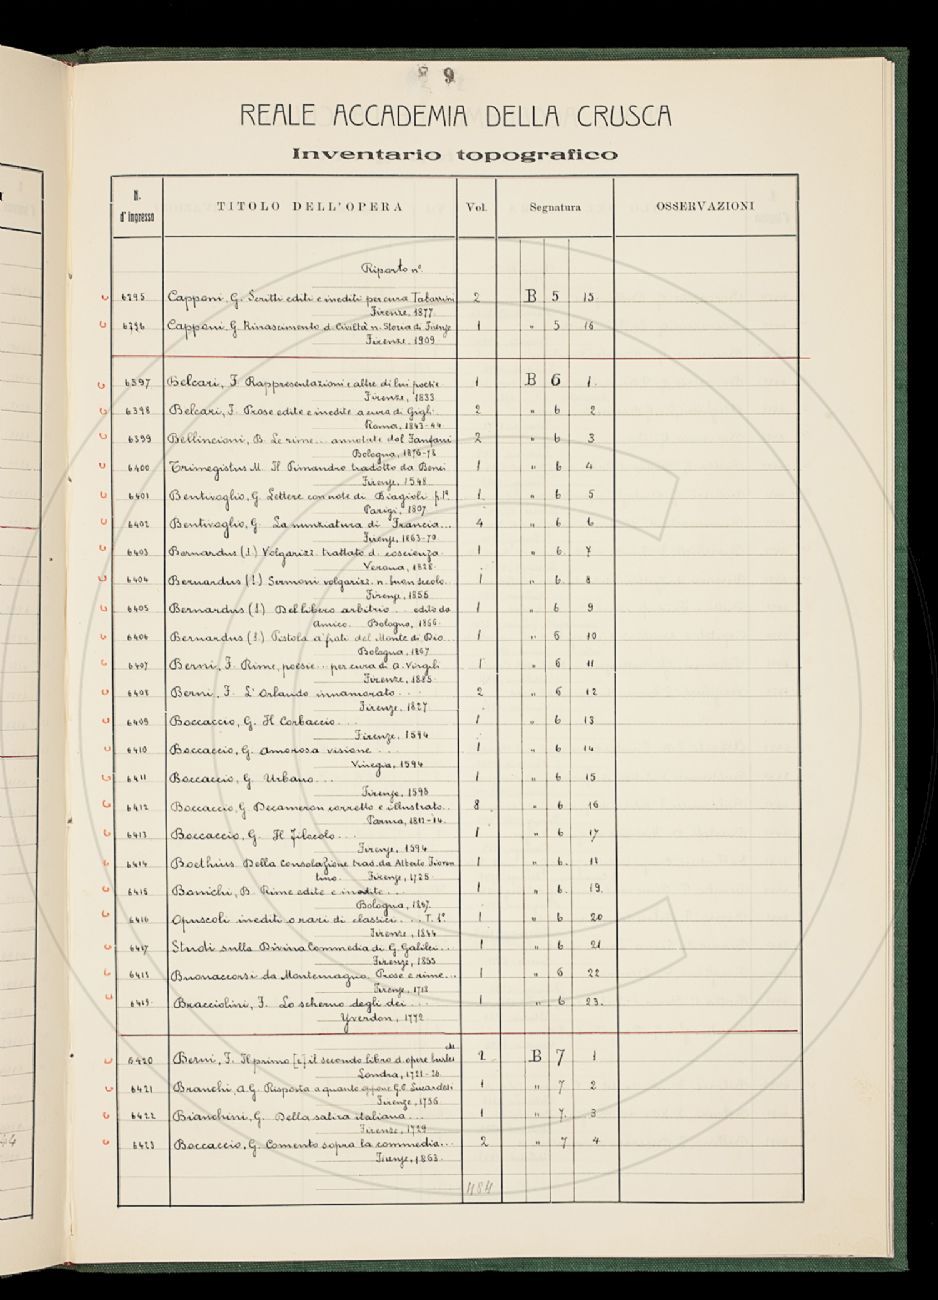 9
REALE ACCADEMIA DELLA CRUSCA
Inventario topografico
N. d'ingresso TITOLO DELL'OPERA Vol. Segnatura OSSERVAZIONI
Riporto nº
6395 Capponi, G. Scritti editi e inediti per cura Tabarrini 2 B 5 15
Firenze, 1877.
6396 Capponi, G. Rinascimento d. civiltà n. Storia di Firenze 1 " 5 16
Firenze, 1909
6397 Belcari, F. Rappresentazioni e altre di lui poesie 1 B 6 1.
Firenze, 1833
6398 Belcari, F. Prose edite e inedite a cura di Gigli. 2 " 6 2
Roma, 1843-44
6399 Bellincioni, B. Le rime... annotate dal Fanfani 2 " 6 3
Bologna, 1876-78
6400 Trimegistus M. Il Pimandro tradotto da Benci 1 " 6 4
Firenze, 1548
6401 Bentivoglio, G. Lettere con note di Biagioli p. Iª 1. " 6 5
Parigi, 1807
6402 Bentivoglio, G. La nunziatura di Francia... 4 " 6 6
Firenze, 1863-70
6403 Bernardus (S.) Volgarizz. trattato d. coscienza. 1 " 6. 7
Verona, 1828.
6404 Bernardus (S.) Sermoni volgarizz. n. buon secolo.. 1 " 6. 8
Firenze, 1855
6405 Bernardus (S.) Del libero arbitrio... edito da 1 " 6 9
amico. Bologna, 1866.
6406 Bernardus (S.) Pistola a' frati del Monte di Dio... 1 " 6 10
Bologna, 1867
6407 Berni, F. Rime, poesie... per cura di A. Virgili 1 " 6 11
Firenze, 1885.
6408 Berni, F. L'Orlando innamorato... 2 " 6 12
Firenze, 1827
6409 Boccaccio, G. Il Corbaccio... 1 " 6 13
Firenze, 1594
6410 Boccaccio, G. Amorosa visione... 1 " 6 14
Vinegia, 1594
6411 Boccaccio, G. Urbano... 1 " 6 15
Firenze, 1598
6412 Boccaccio, G. Decameron corretto e illustrato.. 8 " 6 16
Parma, 1812-14.
6413 Boccaccio, G. Il Filocolo... 1 " 6 17
Firenze, 1594
6414 Boethius. Della consolazione trad. da Alberto Fioren 1 " 6. 18
tino. Firenze, 1735
6415 Bonichi, B. Rime edite e inedite... 1 " 6. 19.
Bologna, 1867.
6416 Opuscoli inediti o rari di classici... T. Iº 1 " 6 20
Firenze, 1844
6417 Studi sulla Divina Commedia di G. Galilei... 1 " 6 21
Firenze, 1855
6418 Buonaccorsi da Montemagno. Prose e rime... 1 " 6 22
Firenze, 1718
6419. Bracciolini, F. Lo scherno degli dei... 1 " 6 23.
Yverdon, 1772
6420 Berni, F. Il primo [e] il secondo libro d. opere burles 2 B 7 1
che
Londra, 1721-24
6421 Branchi, A.G. Risposta a quanto oppone 1 " 7 2
Firenze, 1756
6422 Bianchini, G. Della satira italiana... 1 " 7. 3
Firenze, 1729
6423 Boccaccio, G. Comento sopra la commedia... 2 " 7 4
Firenze, 1863.
484